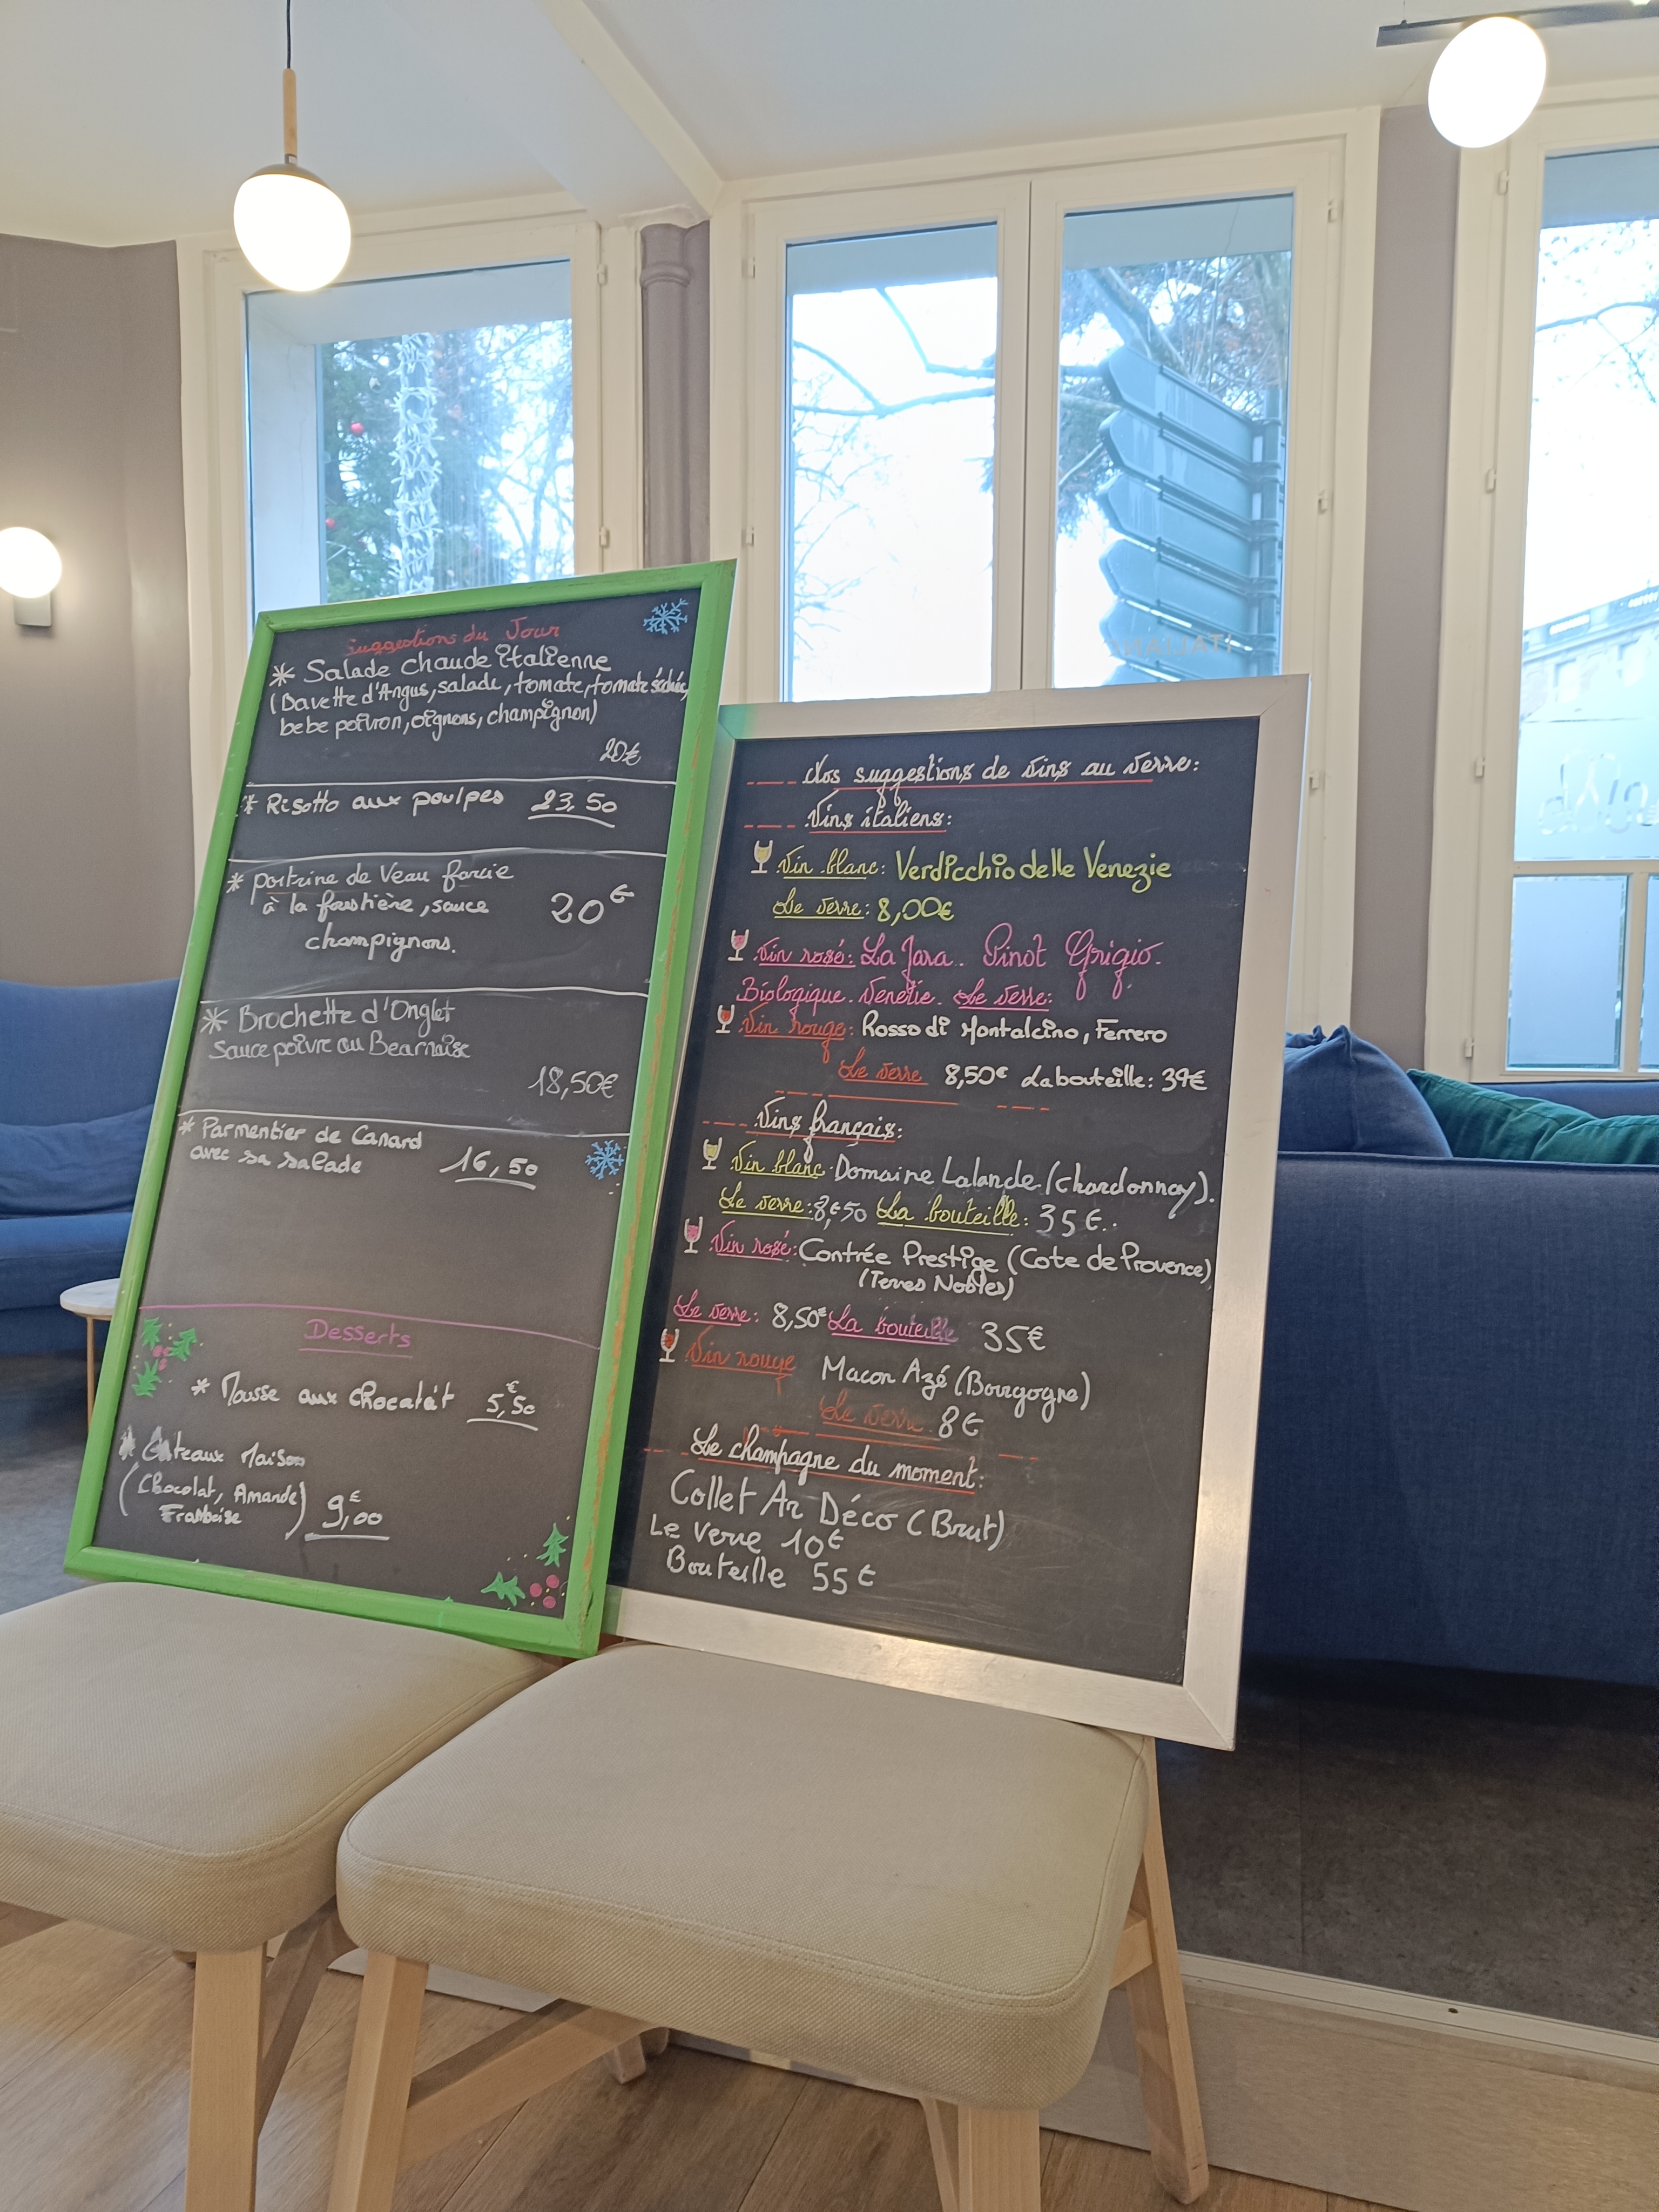 Suggestions du Jour
* Salade chaude italienne
(Bavette d'Angus, salade, tomate, tomate séchée,
bebe poivron, oignons, champignon)
20€
* Risotto aux poulpes 23,50
* poitrine de Veau farcie
à la forestière, sauce 20€
champignons.
* Brochette d'Onglet
Sauce poivre ou Bearnaise
18,50€
* Parmentier de Canard
avec sa salade 16,50
Desserts
* Mousse aux chocolat 5,50€
* Gâteaux Maison
(Chocolat, Amande
Framboise) 9,00€
Nos suggestions de vins au verre:
Vins italiens:
Vin blanc: Verdicchio delle Venezie
Le verre: 8,00€
Vin rosé: La Jara. Pinot Grigio.
Biologique. Venetie. Le verre:
Vin rouge: Rosso di Montalcino, Ferrero
Le verre 8,50€ La bouteille: 39€
Vins français:
Vin blanc: Domaine Lalande (Chardonnay).
Le verre: 8,€50 La bouteille: 35€.
Vin rosé: Contrée Prestige (Cote de Provence)
(Terres Nobles)
Le verre: 8,50€ La bouteille 35€
Vin rouge Macon Azé (Bourgogne)
Le verre 8€
Le champagne du moment:
Collet Ar Déco (Brut)
Le Verre 10€
Bouteille 55€